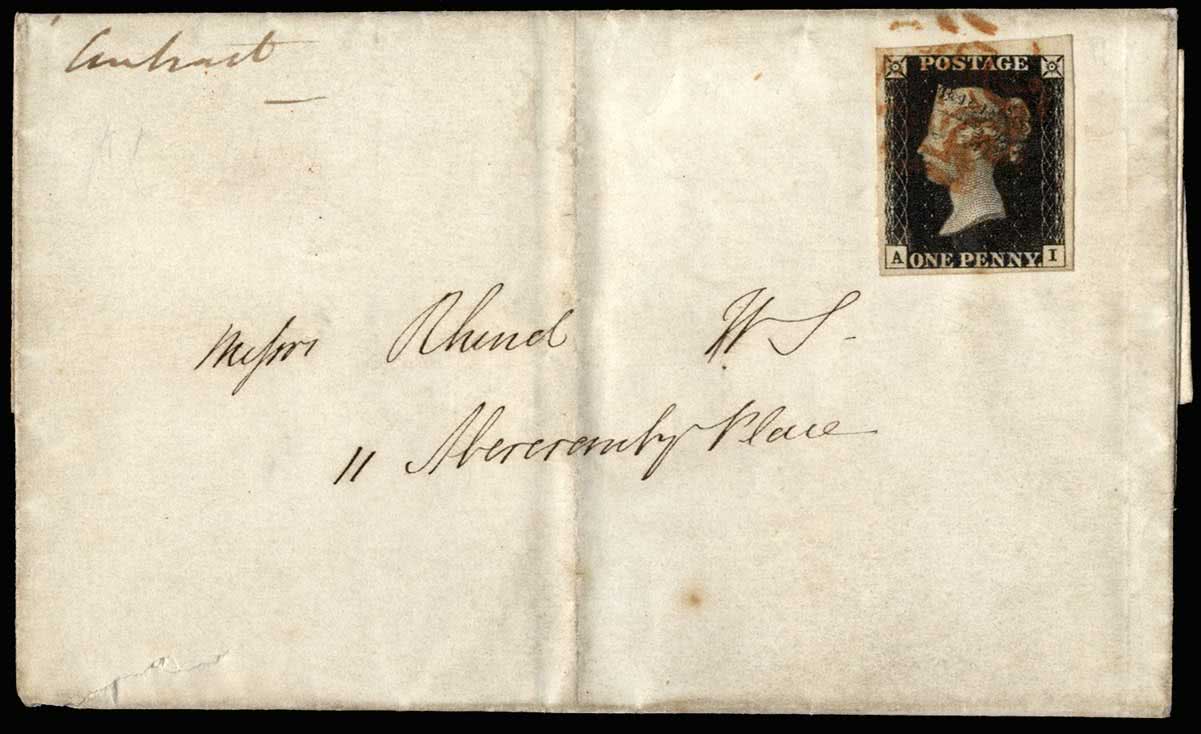 Contract
POSTAGE
A ONE PENNY I
Messrs Rhind W S
11 Abercromby Place